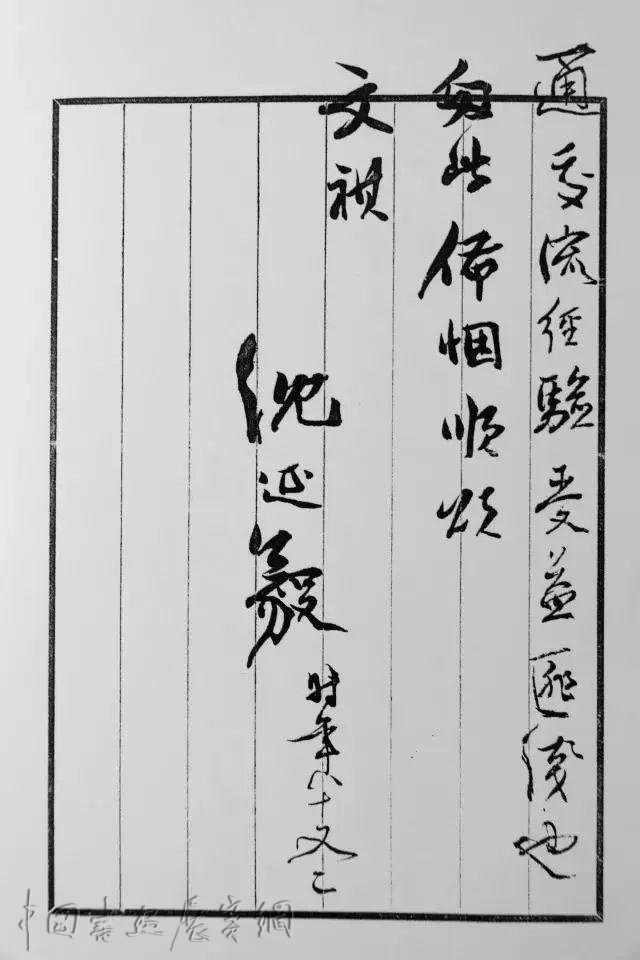 通交流經驗受益匪淺也
匆此佈悃順頌
文祺
沈延毅
时年八十又二
中国書画展賽網